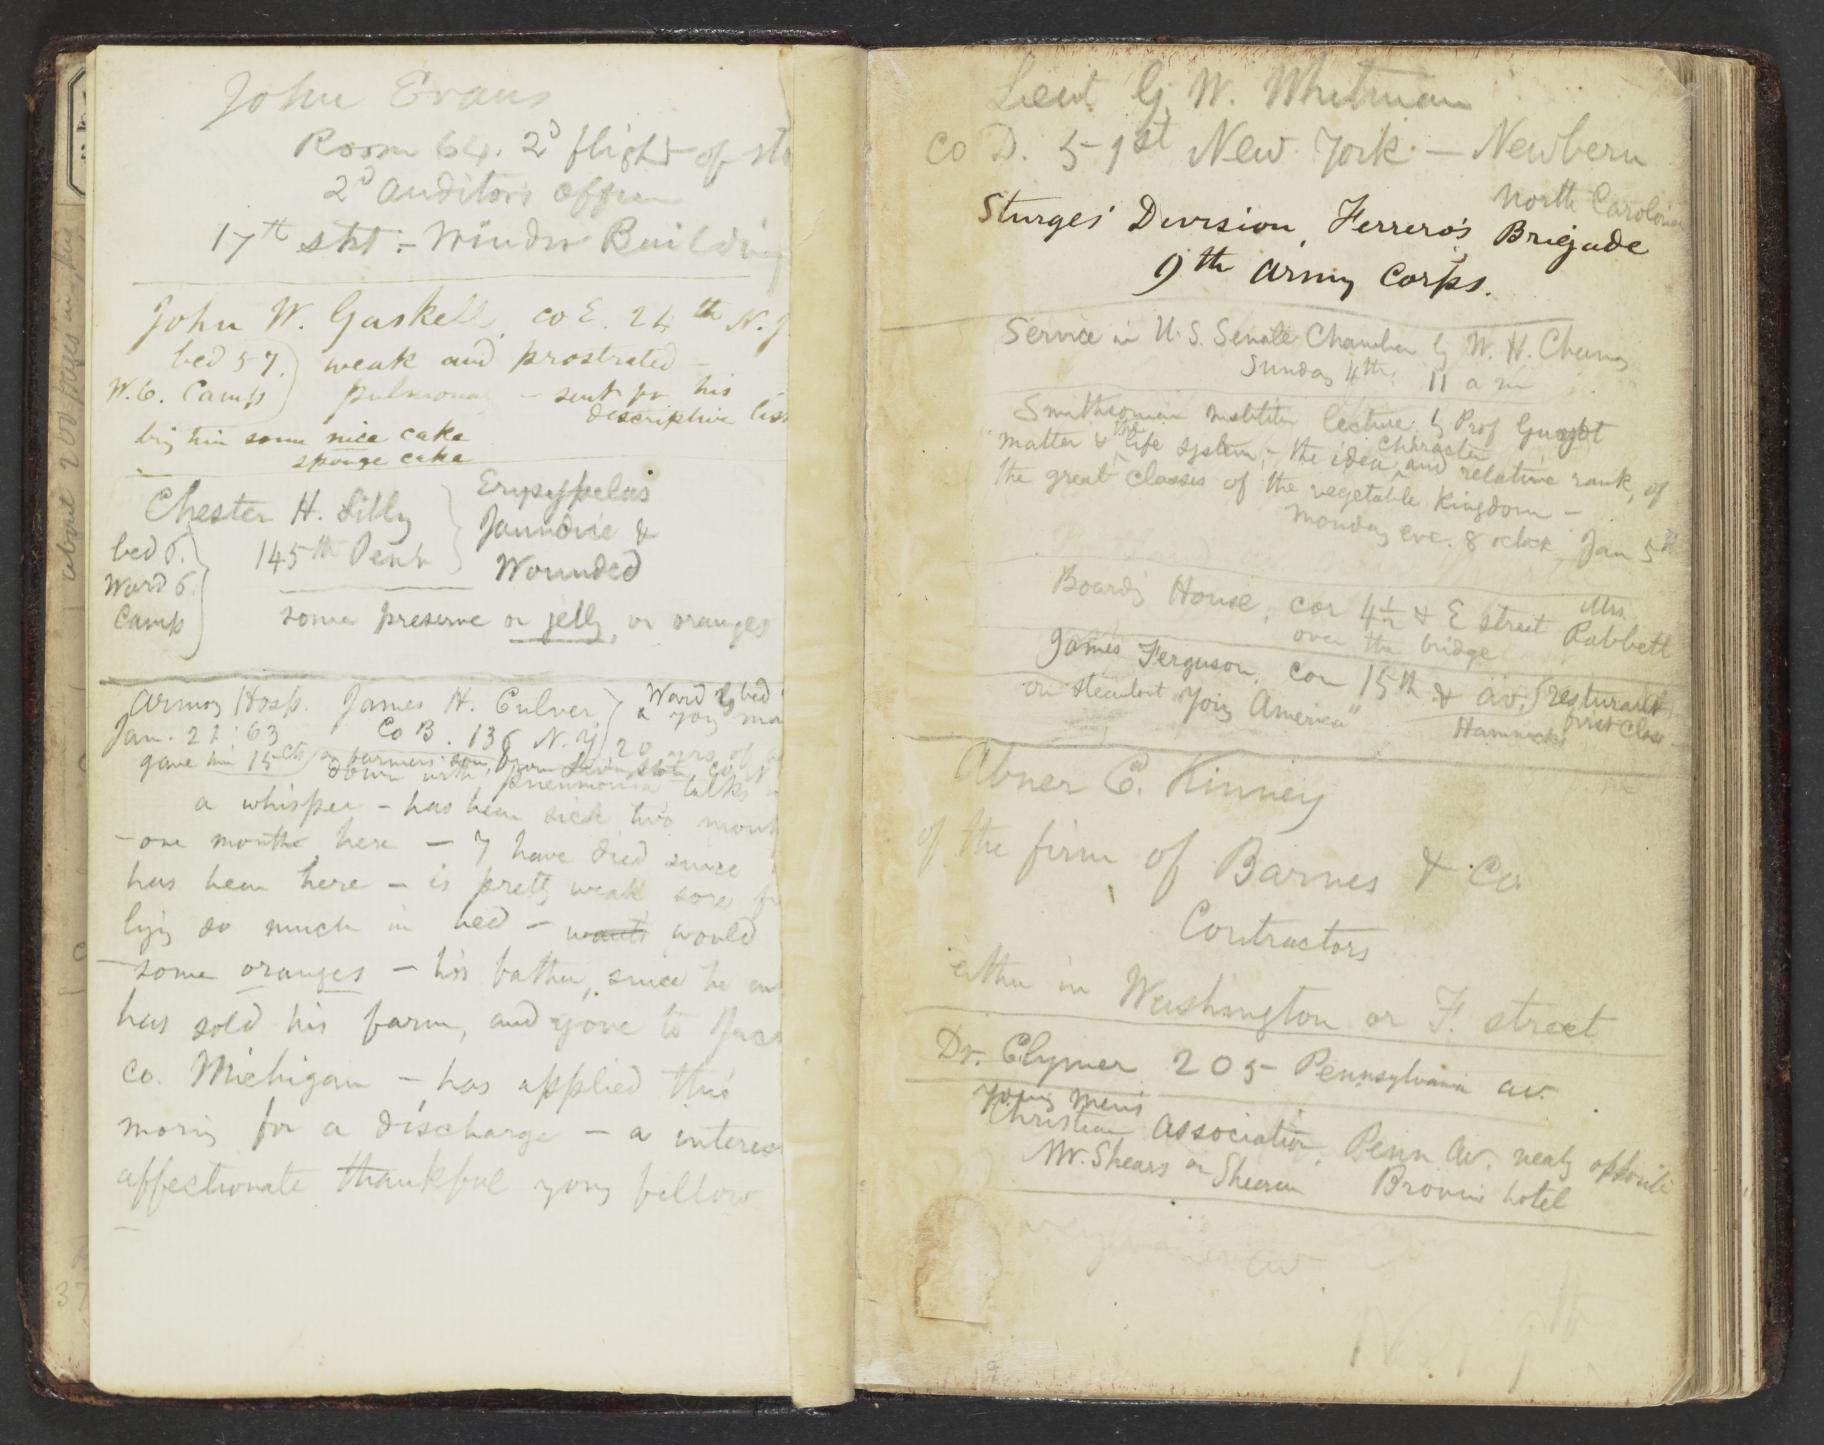 John Evans
Room 64. 2d flight of
2d auditors office
17th st : Winder Building
John W. Gaskell, co E. 24th N.J
bed 57. weak and prostrated —
W. 6. Camp pulmonary — sent for his
descriptive list
bring him some nice cake
sponge cake
Chester H. Lilly
Erysypelas
Jaundice &
Wounded
bed 6.
145th Penn
Ward 6
Camp
some preserve or jelly, or oranges
Armory Hosp. James H. Culver, Ward bed
a young man
Jan. 21 '63 Co B. 136 N.Y. 20 yrs of
gave him 15cts a farmers son, from Livingston co
down with pneumonia talks
a whisper — has been sick two
— one month here — 7 have died since
has been here — is pretty weak sore
lying so much in bed — wants would
some oranges — his father, since he
has sold his farm, and gone to
co. Michigan — has applied this
morning for a discharge — a
affectionate thankful young fellow
—
about 200 pages in
37
Lieut G. W. Whitman
co D. 51st New York — Newbern
North Carolina
Sturges' Division, Ferrero's Brigade
9th army Corps.
Service in U.S. Senate Chamber by W. H. Channing
Sunday 4th. 11 a m
Smithsonian Institution lecture by Prof Guyot
matter & the life system, — the idea, character and relative rank, of
the great classes of the vegetable kingdom —
Monday eve. 8 oclock, Jan 5th
Boarding House, cor 4½ & E street Mrs.
over the bridge Rabbett
James Ferguson. cor 15th & av. (resturant
on steamboat "Young America" Hammacks first class
Abner C. Kinney
of the firm of Barnes & Co
Contractors
either in Washington or F. street
Dr. Clymer 205 Pennsylvania av.
Young men's
Christian Association, Penn Av. nearly opposite
Mr. Shears or Shearer Browns hotel
9